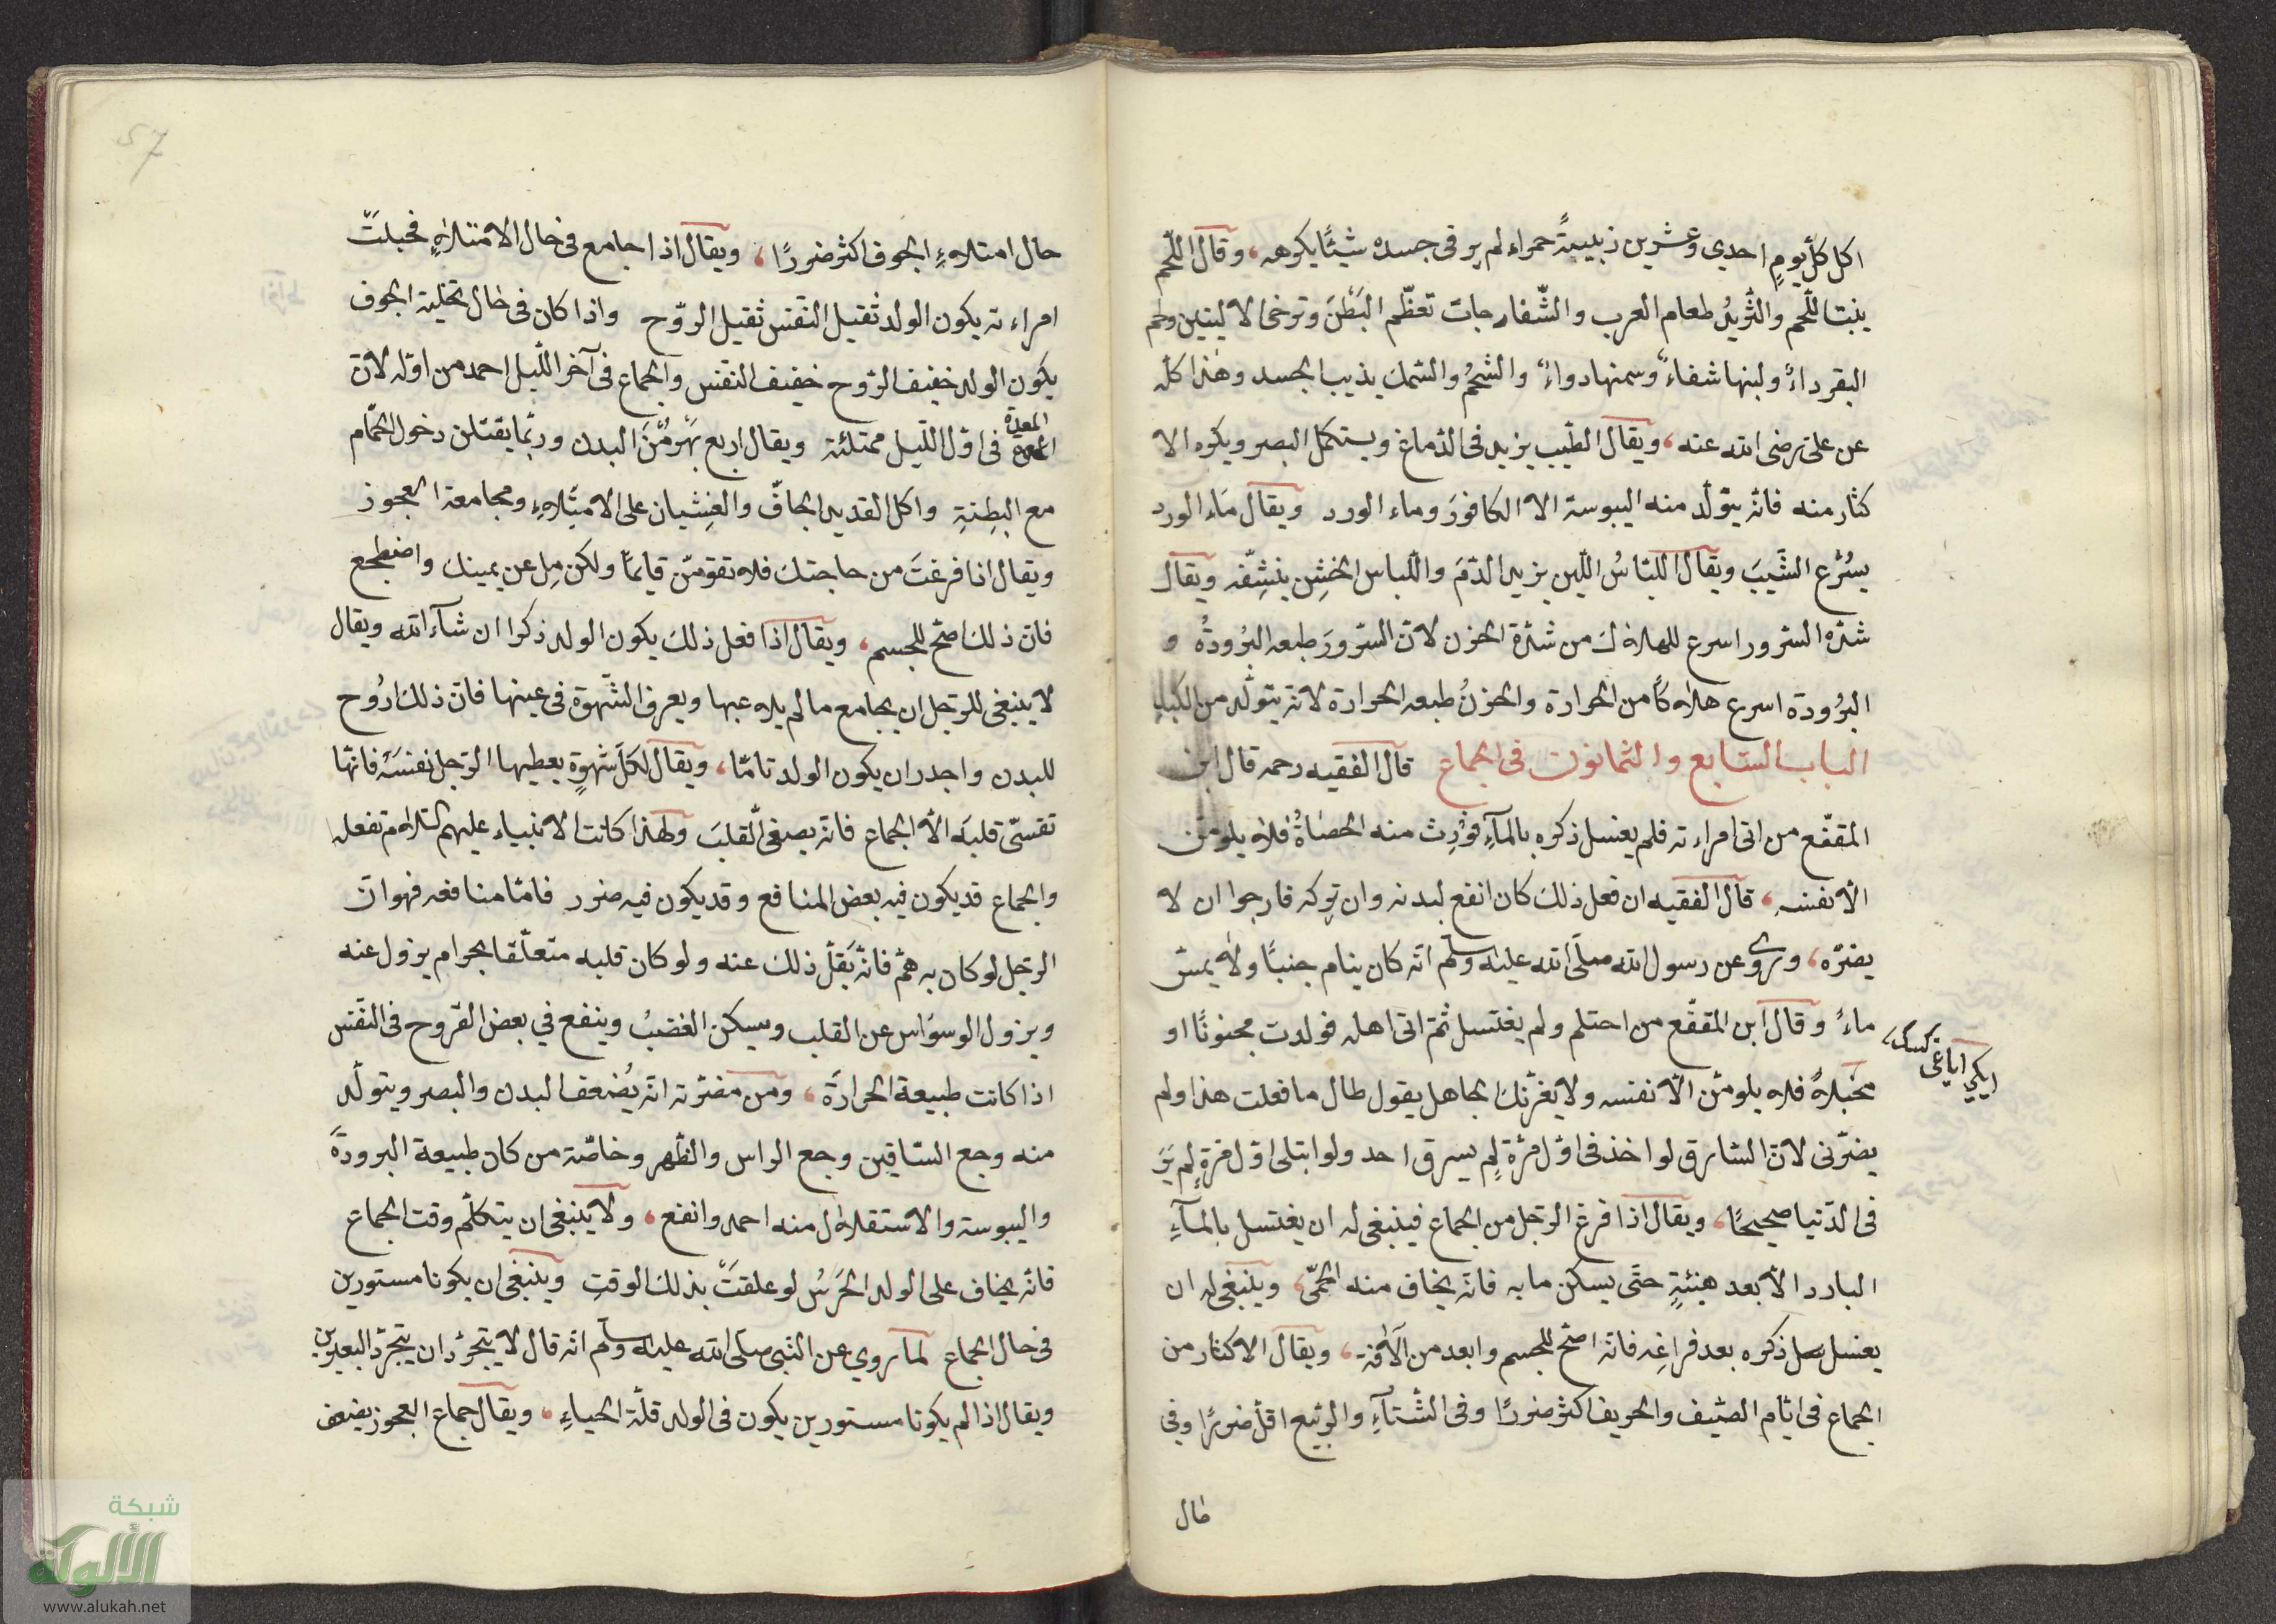 اكل كلّ يومٍ احدي وعشرين زبيبةً حمراء لم ير فى جسده شيئًا يكرهه، وقال اللّحم
ينبت اللّحم والثّريدُ طعام العرب والشّفارجات تعظّم البَطْنَ وترخى الاليتين ولحم
البقر داءٌ ولبنها شفاءٌ وسمنها دواءٌ والشحمُ والسّمك يذيب الجسد وهذا كلّه
عن على رضى الله عنه، ويقال الطّيب يزيد فى الدّماغ ويستكمل البصر ويكره الا
كثار منه فانّه يتولّد منه اليبوسة الا الكافورَ وماء الورد ويقال مَاء الورد
يسُرّع الشَّيبَ ويقال اللباسُ اللّين يزيد الدّمَ واللّباس الخشِن ينشِفّه ويقال
شدّة السّرور اسرع للهلاك من شدّة الحزن لانّ السّرورَ طبعه البُرُودةُ و
البرُودة اسرع هلاكًا من الحرارة والحزنُ طبعه الحرارة لانّه يتولّد من الكبدِ
الباب السّابع والثمانون فى الجماع قال الفقيه رحمه قال ابن
المقفّع من اتى امراءته فلم يغسل ذكره بالمآءِ فوُرِث منه الحصَاةُ فلا يلومنّ
الّا نفسَه، قال الفقيه ان فعل ذلك كان انفع لبدنه وان تركه فارجوا ان لا
يضرّه، وروى عن رسول الله صلّى الله عليه وسلّم انّه كان ينام جنبًا ولا يمسّ
ماءً وقال ابن المقفّع من احتلم ولم يغتسل ثمّ اتى اهله فولدت مجنونًا او
مخبّلاً فلا يلومنّ الّا نفسه ولا يغرّنك الجاهل يقول طال ما فعلت هذا ولم
يضرّنى لانّ السّارق لو اخذ فى اوّل مرّة لم يسرق احد ولو ابتلى اوّل مرّةٍ لم يَرَ
فى الدّنيا صحيحًا، ويقال اذا فرغ الرّجل من الجماع فينبغى له ان يغتسل بالمآءِ
البارد الّا بعد هنيئةٍ حتّى يسكن ما به فانّه يخاف منه الحمّى، وينبغى له ان
يغسل ذكره بعد فراغِه فانّه اصحّ للجسم وابعد من الآفة، ويقال الاكثار من
الجماع فى ايّام الصّيف والخريف اكثر ضررًا وفى الشّتآءِ والرّبيع اقلّ ضررًا وفى
حال
ايكى اياغى
57
حال امتلاءِ الجوف اكثر ضررًا، ويقال اذا جامع فى حال الامتلاءِ فحبلتْ
امراءته يكون الولد ثقيل النّفس ثقيل الرّوح واذا كان فى حال تخلية الجوف
يكون الولد خفيف الرّوح خفيف النفس والجماع فى آخر اللّيل احمد من اوّله لانّ
المعدة
فى اوّل اللّيل ممتلئة ويقال اربع يهرمْنَ البدن وربّما يقتلن دخول الحمّام
مع البِطنةِ واكل القديد الجافّ والغِشيان على الامتلاءِ ومجامعة العجوز
ويقال اذا فرغتَ من حاجتك فلا تقومّن قايمًا ولكن مِل عن يمينك واضطجع
فانّ ذلك اصحّ للجسم، ويقال اذا فعل ذلك يكون الولد ذكرا ان شآء الله ويقال
لا ينبغى للرّجل ان يجامع ما لم يلاعبها ويعرف الشّهوة فى عينها فانّ ذلك ارُوح
للبدن واجدر ان يكون الولد تامّا، ويقال لكلّ شهوةٍ يعطيها الرّجل نفسَه فانّها
تقسّى قلبَه الّا الجماع فانّه يصفى القلبَ ولهذا كانت الانبياء عليهم السّلام تفعله
والجماع قد يكون فيه بعض المنافع وقد يكون فيه ضرر فامّا منافعه فهو انّ
الرّجل لو كان به همّ فانّه يَقلّ ذلك عنه ولو كان قلبه متعلّقا بحرام يزول عنه
ويزول الوسواس عن القلب ويسكن الغضبُ وينفع في بعض القروح فى النّفس
اذا كانت طبيعة الحرارةَ، ومن مضرّته انّه يُضعف البدن والبصر ويتولّد
منه وجع السّاقين وجع الراس والظّهر وخاصّة من كان طبيعة البرودةَ
واليبوسة والاستقلال منه احمد وانفع، ولا ينبغى ان يتكلّم وقت الجماع
فانّه يخاف على الولد الخَرَسُ لو علقتَْ بذلك الوقتِ وينبغى ان يكونا مستورين
فى حال الجماع لما روي عن النّبى صلّى الله عليه وسلّم انّه قال لا يتجرّدان تجرّد البعيرين
ويقال اذا لم يكونا مستورين يكون فى الولد قلّة الحياءِ، ويقال جماع العجوز يضعف
شبكة
الألوكة
www.alukah.net